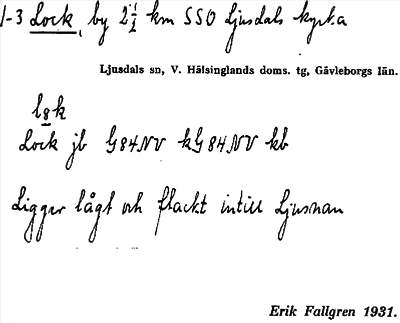 1-3 Lock, by 2½ km SSO Ljusdals kyrka
Ljusdals sn, V. Hälsinglands doms. tg, Gävleborgs län.
Lock jb G84NV kG84NV kb
Ligger lågt och flackt intill Ljusnan
Erik Fallgren 1931.